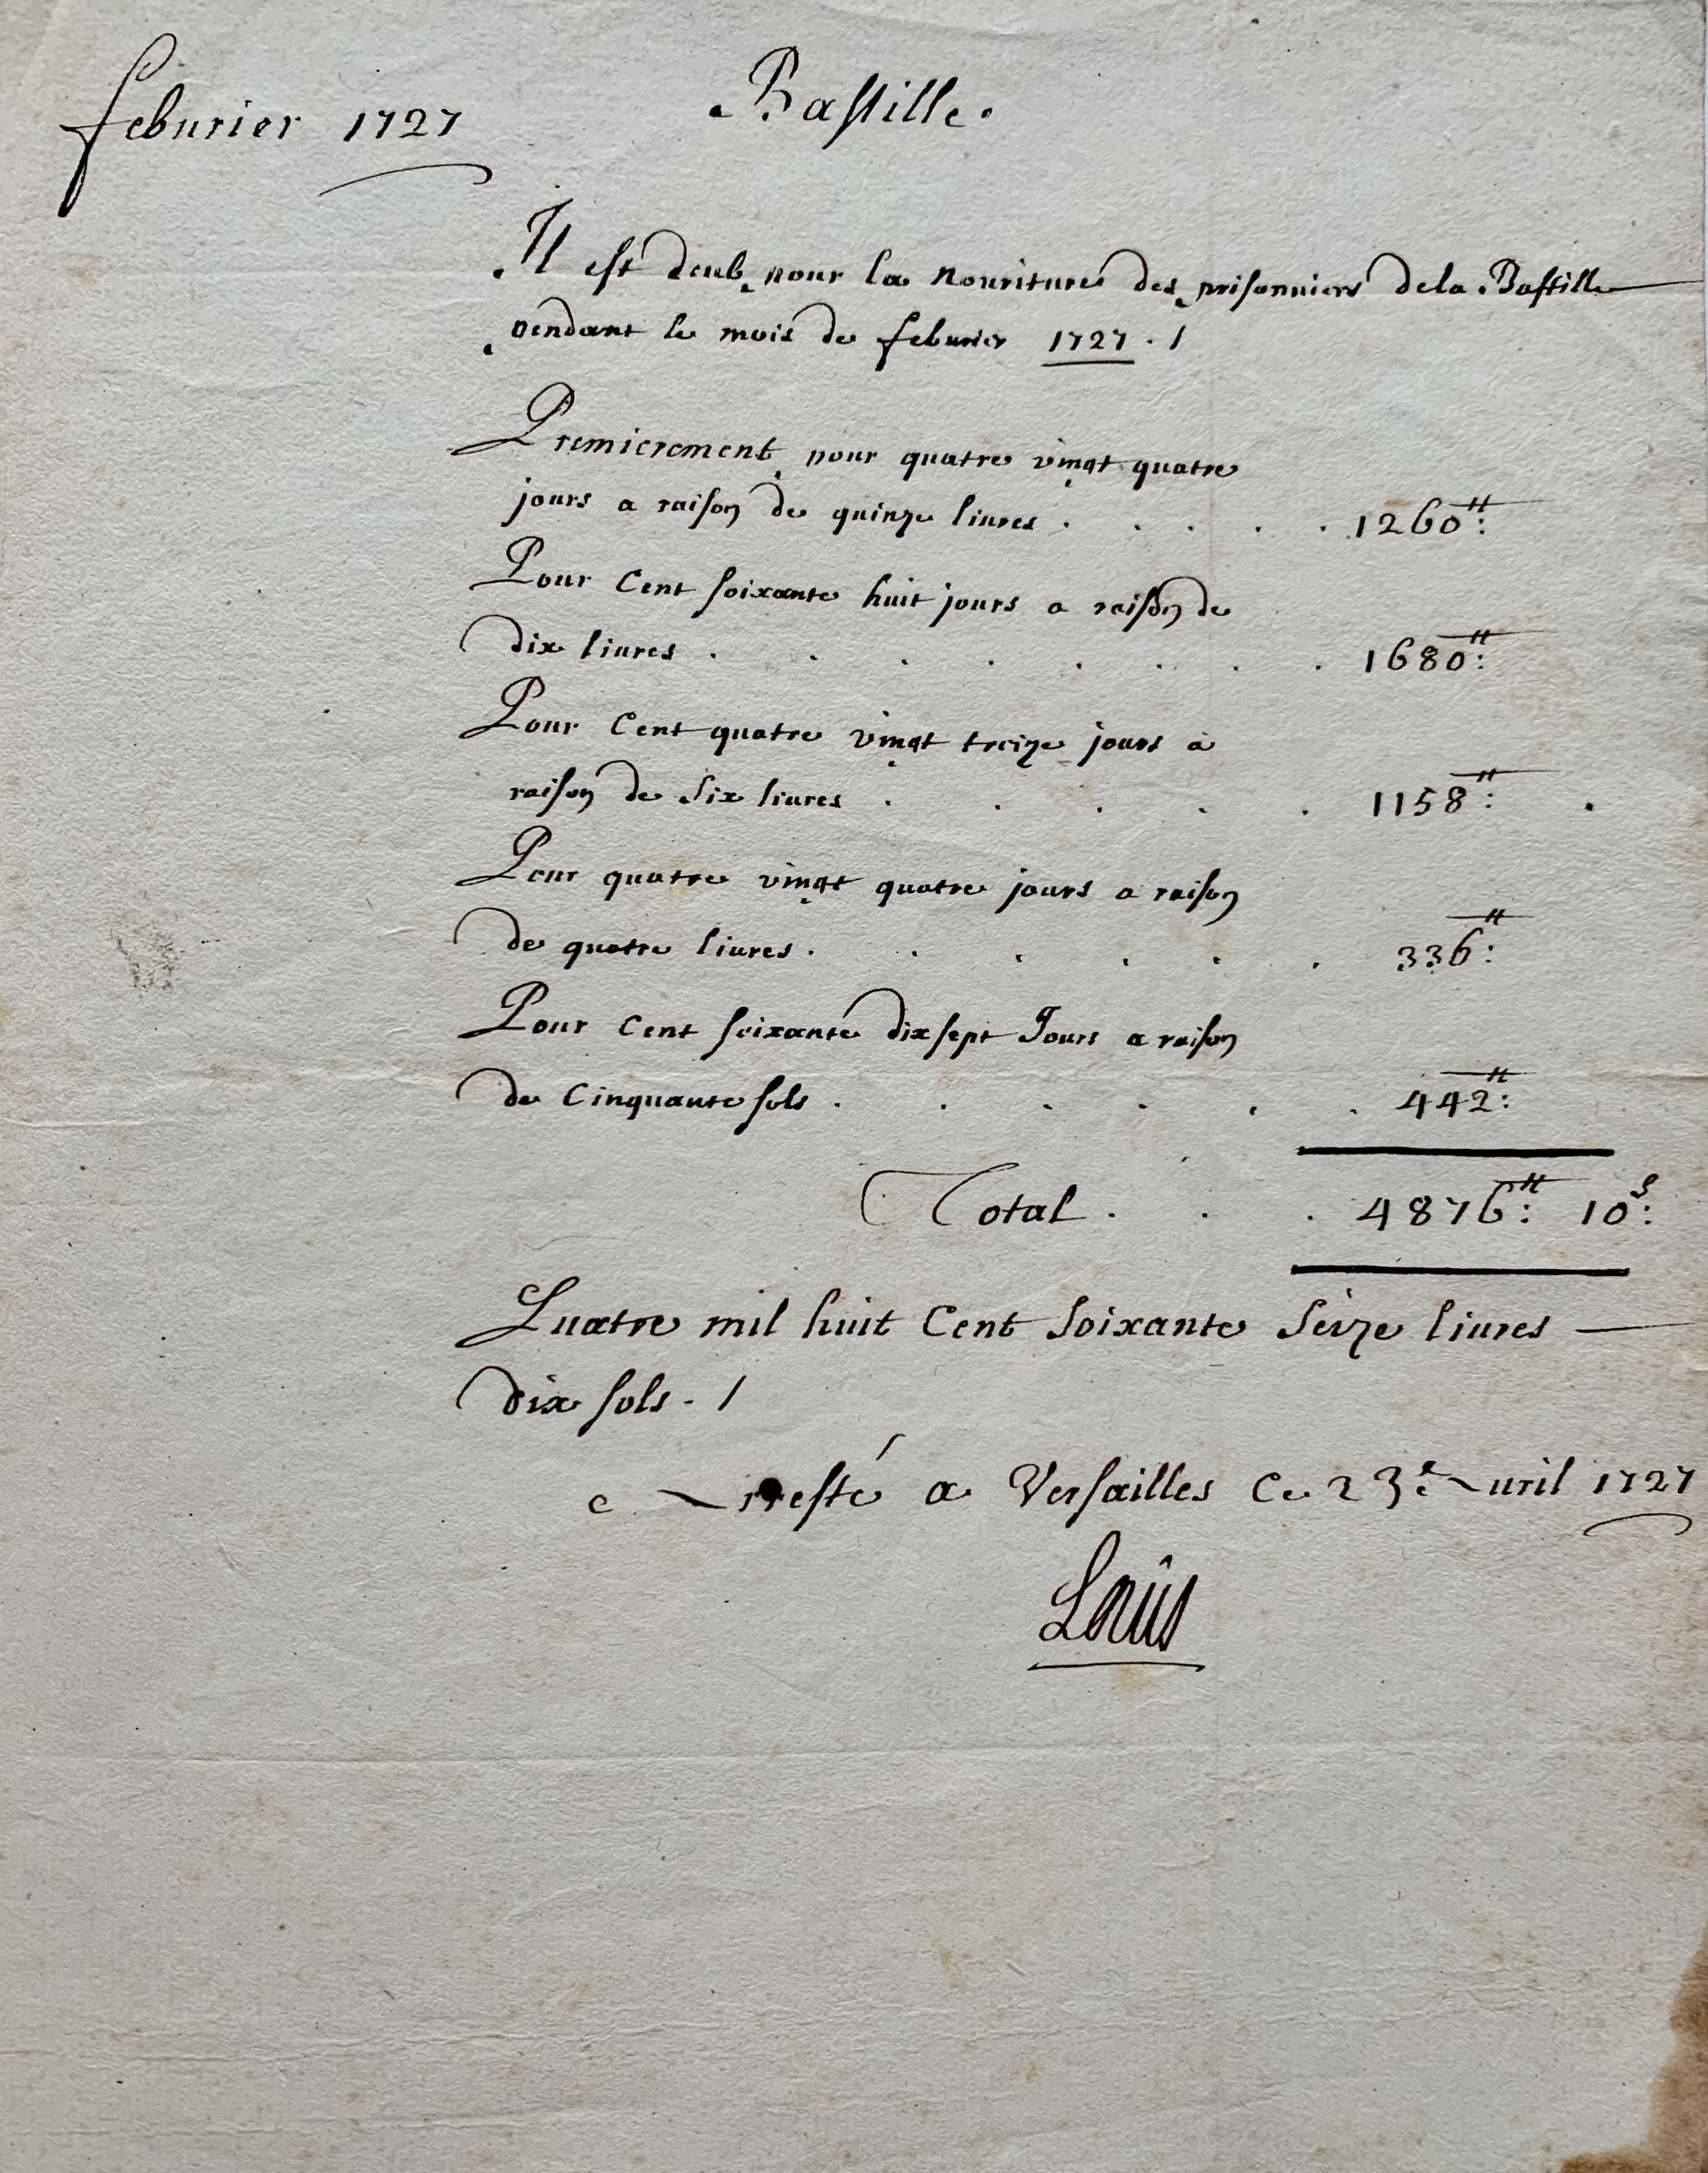 feburier 1727
Bastille.
Il est deub pour la nouriture des prisonniers dela Bastille
pendant le mois de feburier 1727. /
Premierement pour quatre vingt quatre
jours a raison de quinze liures . . . . 1260ᴴ:
Pour Cent soixante huit jours a raison de
dix liures . . . . . . . . 1680ᴴ:
Pour Cent quatre vingt treize jours a
raison de Six liures . . . . . 1158ᴴ:
Pour quatre vingt quatre jours a raison
de quatre liures . . . . . . 336ᴴ:
Pour Cent soixante dix sept Jours a raison
de Cinquante sols . . . . . . 442ᴴ:
Total . . . 4876ᴴ: 10ˢ:
Quatre mil huit Cent Soixante Seize liures
dix sols. /
Arresté a Versailles Ce 23ᵉ Auril 1727
Louis